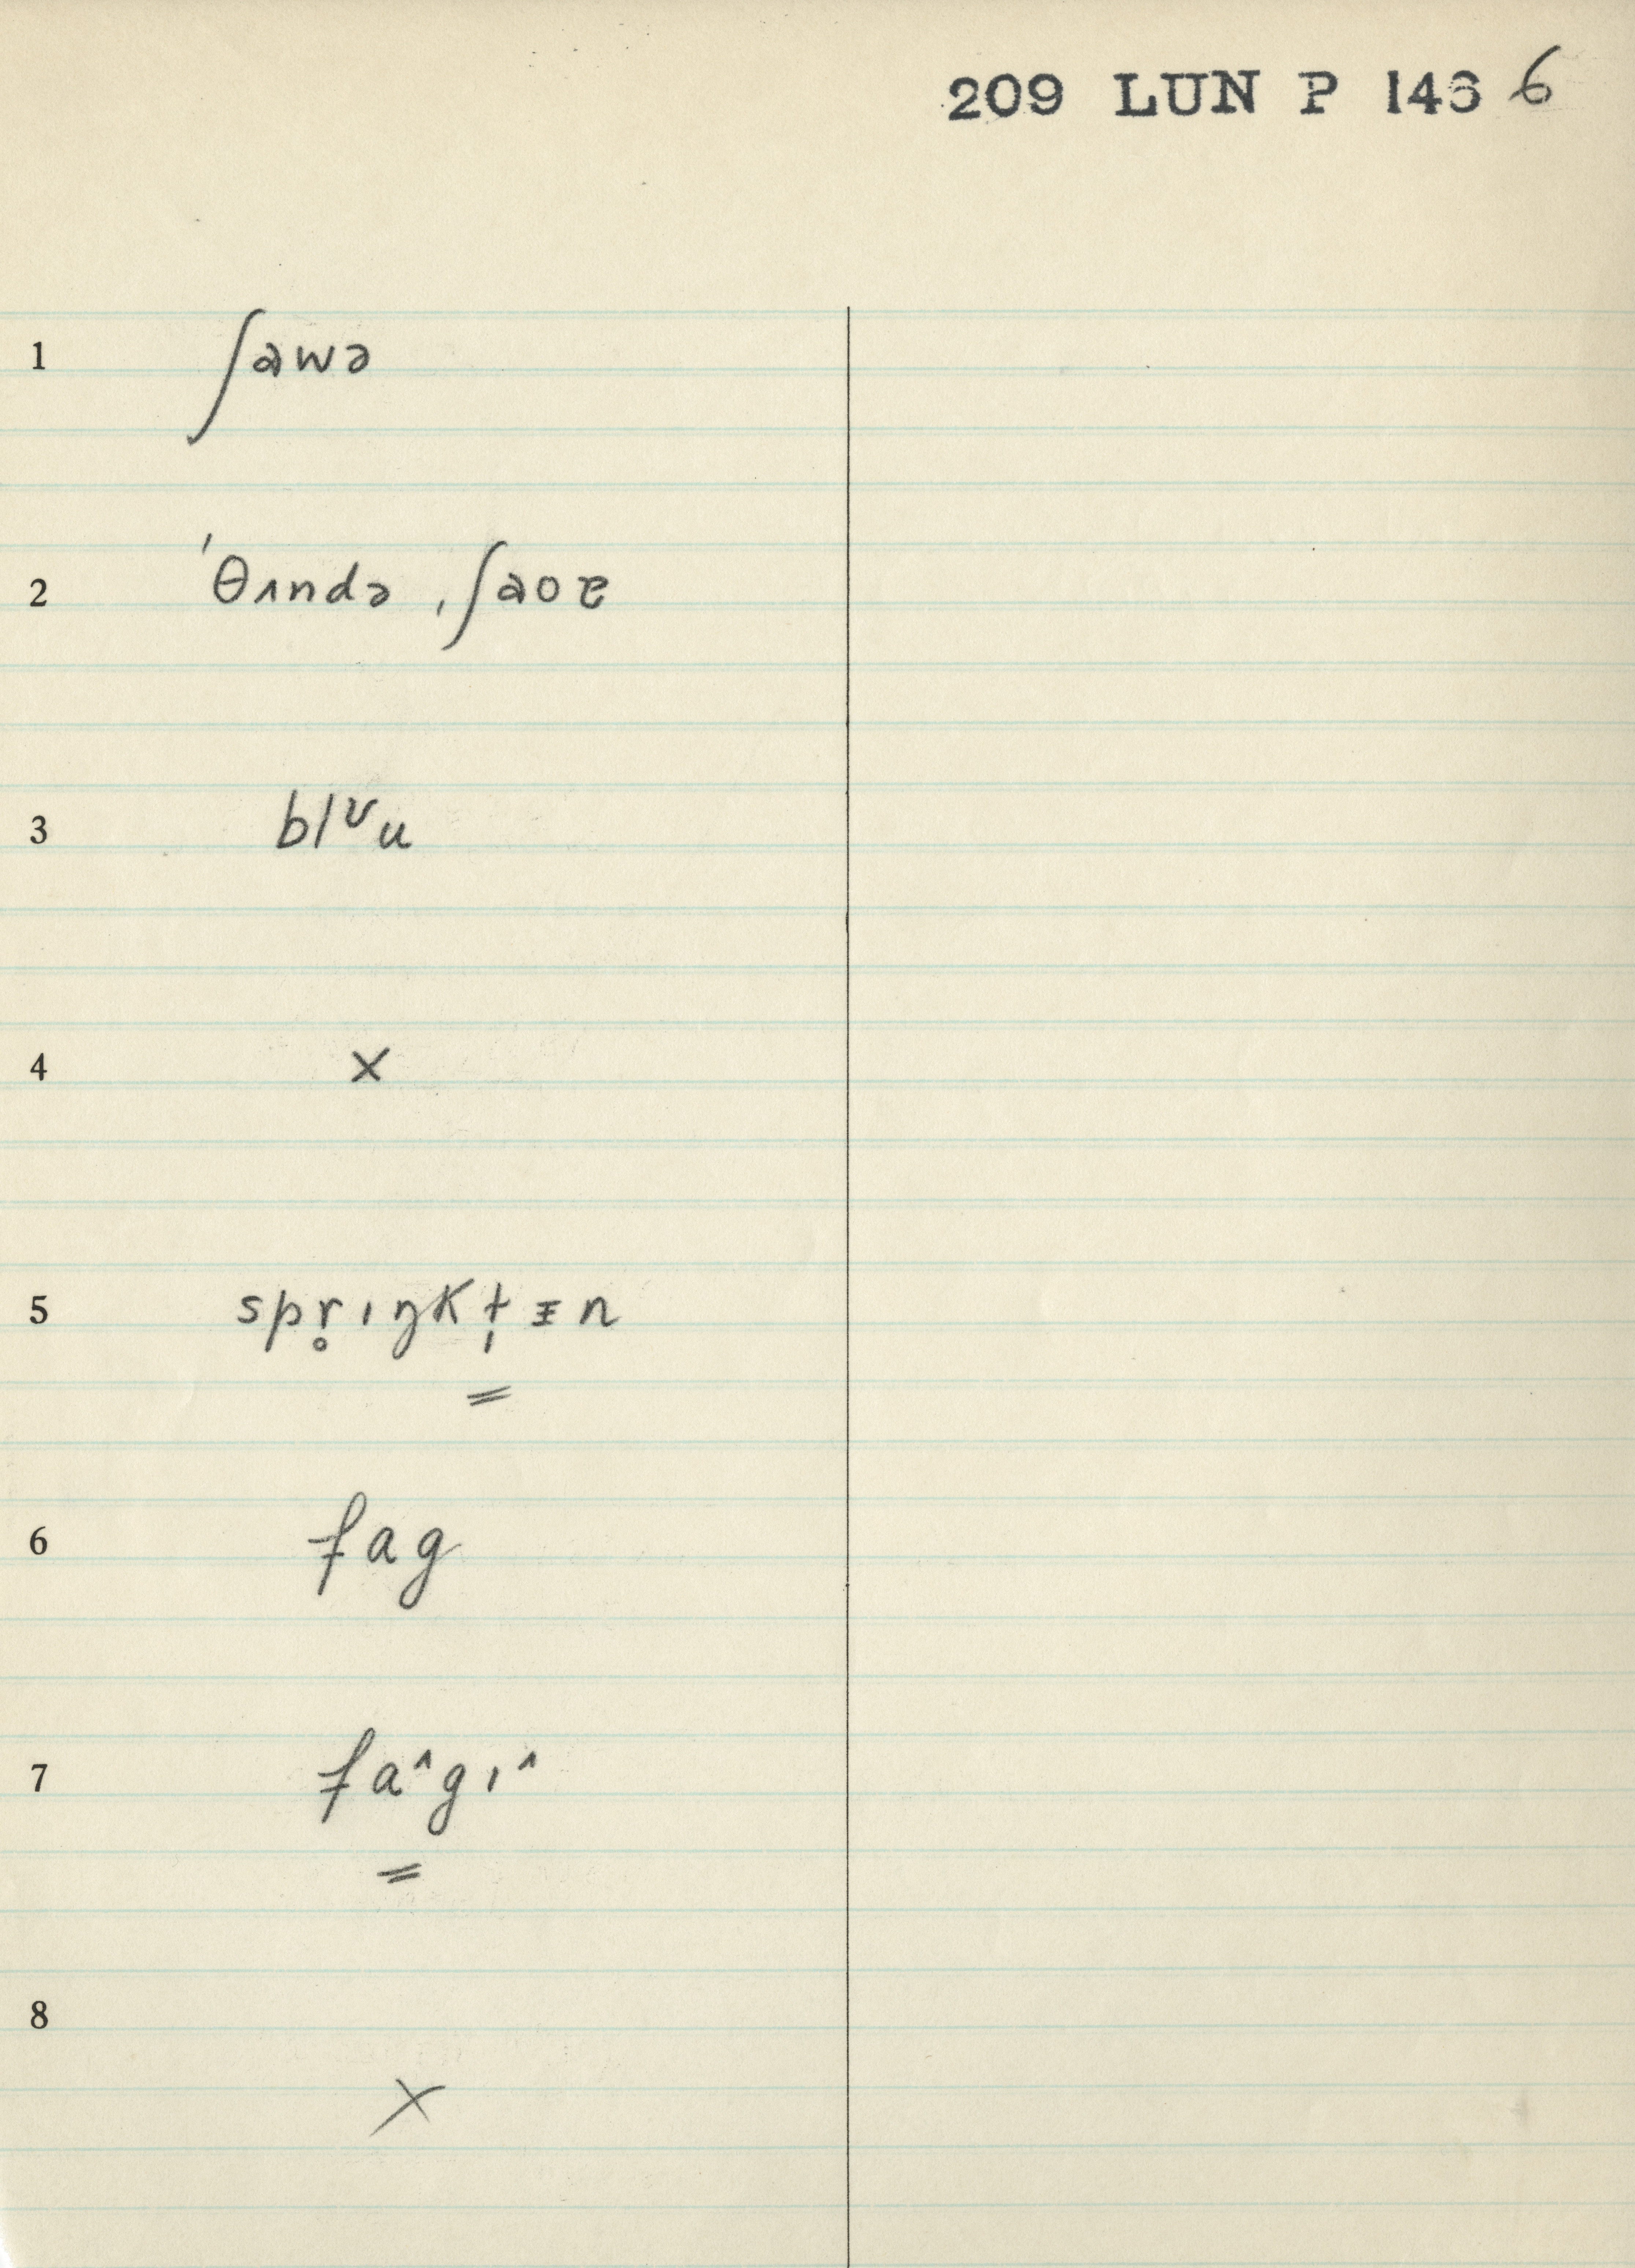 209 LUN P 146 6
1 ʃawə
2 ˈθʌndə ˌʃaoɐ
3 blᶷu
4 x
5 spr̥ɪŋkɫ̩ɪ̵n
6 fag
7 faˆgɪˆ
8 x